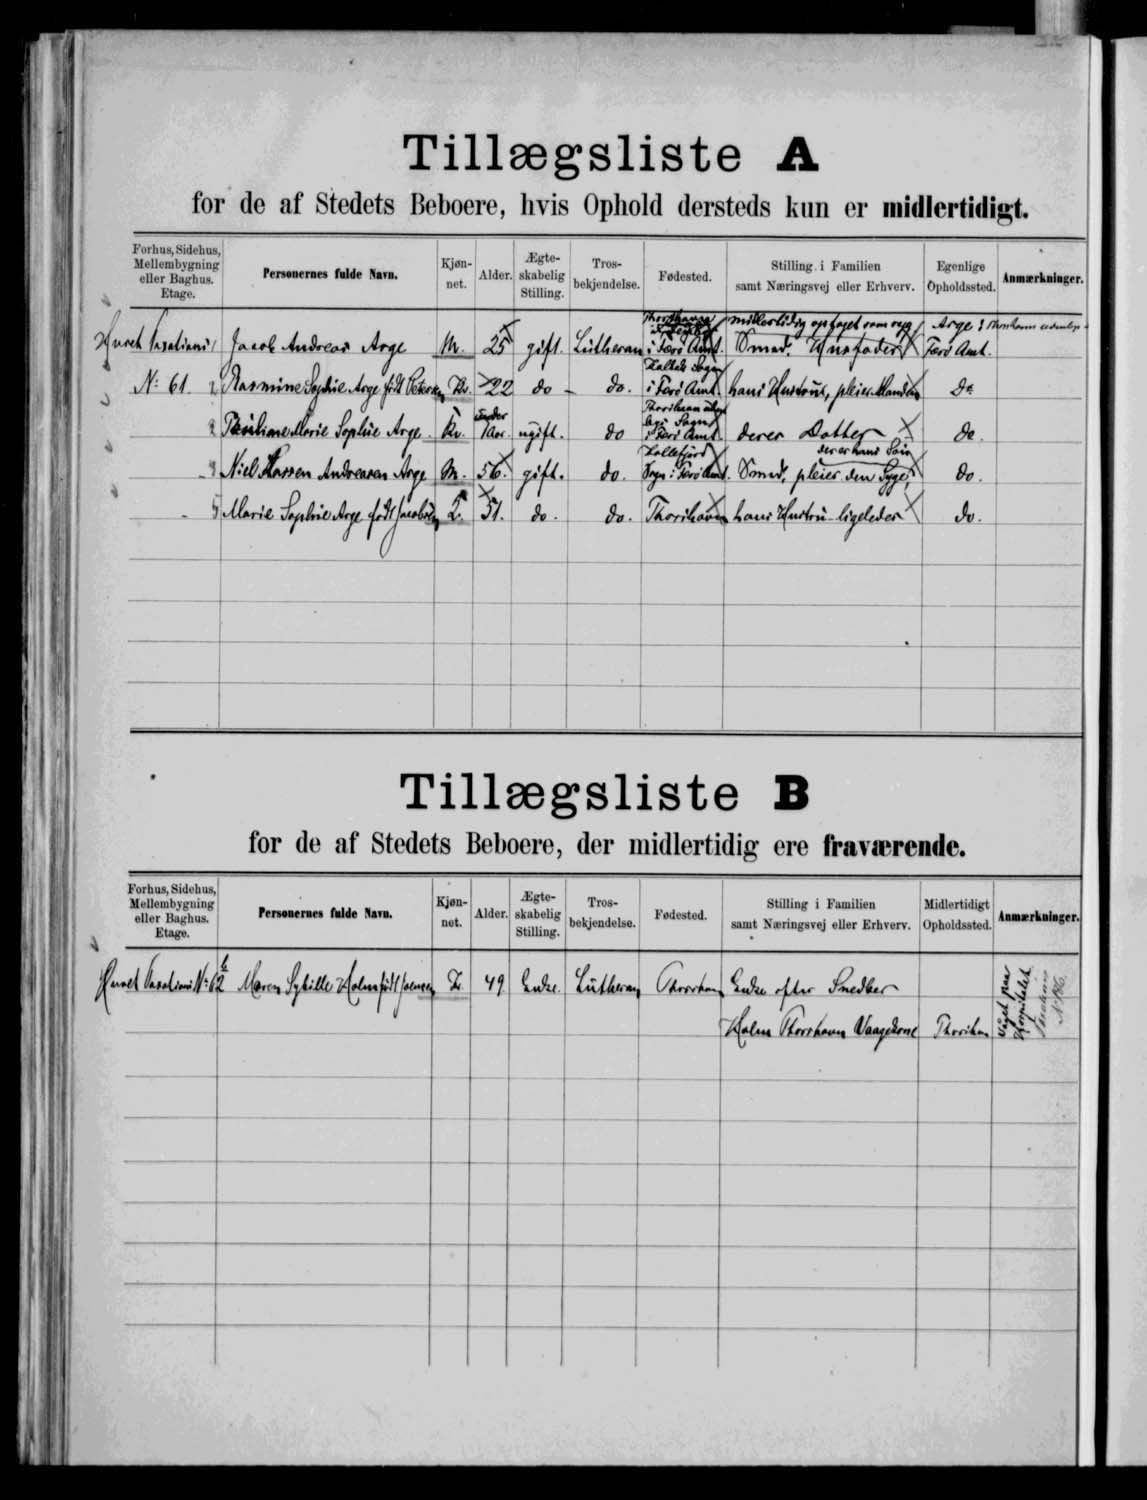 Tillægsliste A
for de af Stedets Beboere, hvis Ophold dersteds kun er midlertidigt.
Forhus, Sidehus, Mellembygning eller Baghus. Etage. Personernes fulde Navn. Kjøn-net. Alder. Ægte-skabelig Stilling. Tros-bekjendelse. Fødested. Stilling i Familien samt Næringsvej eller Erhverv. Egenlige Opholdssted. Anmærkninger.
Huset 1 Jacob Andreas Arge M. 25 gift. Lutheran i Færø Amt. midlertidig optaget som syg Smed, Husfader Arge i Færø Amt.
No 61. 2 Rasmine Sophie Arge født Petersen Kv. 22 do do. Sogn i Færø Amt. hans Hustru, pleier Manden do
Marie Sophie Arge Kv. under 1 Aar. ugift. do Sogn i Færø Amt. deres Datter do.
Niels Hansen Andreasen Arge M. 56. gift. do. Kollefjord Sogn i Færø Amt. Smed, pleier den Syge, der er hans Søn do.
5 Marie Sophie Arge født Jacobsen K. 51. do. do. Thorshavn hans Hustru ligeledes do.
Tillægsliste B
for de af Stedets Beboere, der midlertidig ere fraværende.
Forhus, Sidehus, Mellembygning eller Baghus. Etage. Personernes fulde Navn. Kjøn-net. Alder. Ægte-skabelig Stilling. Tros-bekjendelse. Fødested. Stilling i Familien samt Næringsvej eller Erhverv. Midlertidigt Opholdssted. Anmærkninger.
Huset No 62 b Maren Sybille Holm født Joensen K. 49 Enke. Lutheran Thorshavn Enke efter Snedker
Holm Thorshavn Vaagekone Thorshavn Våget paa Hospitalet.